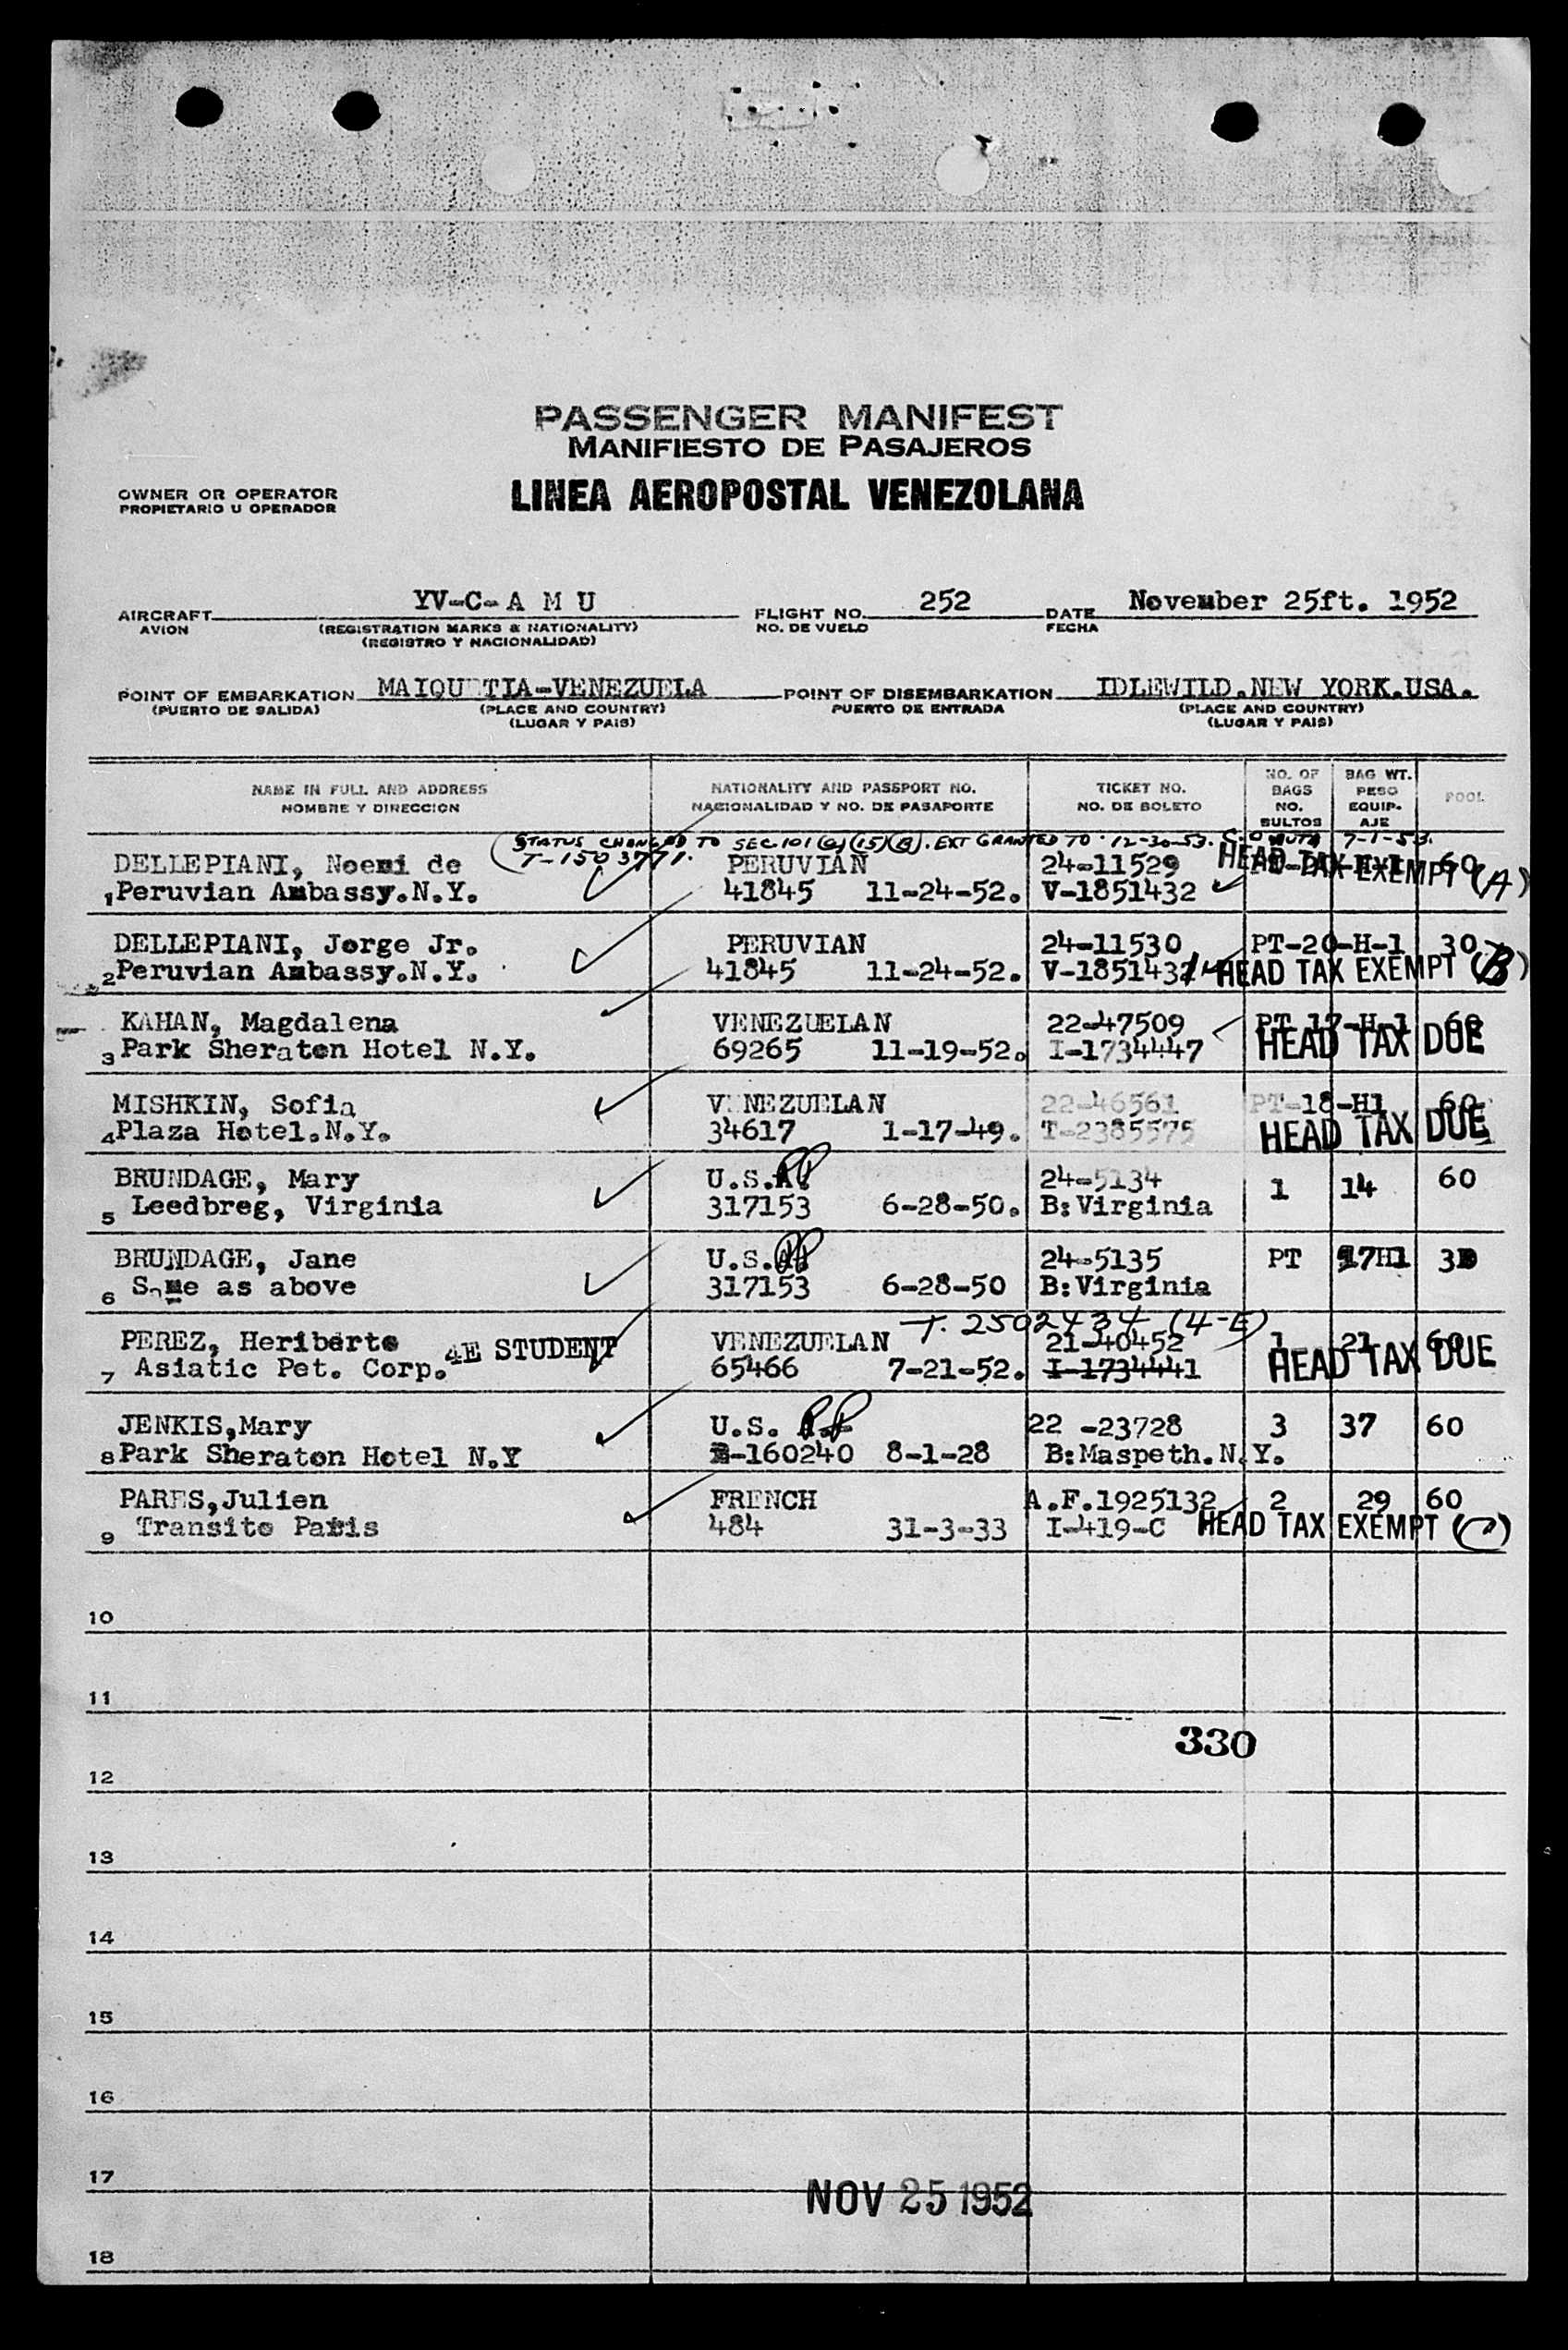 PASSENGER MANIFEST
MANIFIESTO DE PASAJEROS
OWNER OR OPERATOR
PROPIETARIO U OPERADOR
LINEA AEROPOSTAL VENEZOLANA
AIRCRAFT YV-C-A M U FLIGHT NO. 252 DATE November 25ft. 1952
AVION (REGISTRATION MARKS & NATIONALITY) NO. DE VUELO FECHA
(REGISTRO Y NACIONALIDAD)
POINT OF EMBARKATION MAIQU TIA-VENEZUELA POINT OF DISEMBARKATION IDLEWILD.NEW YORK.USA.
(PUERTO DE SALIDA) (PLACE AND COUNTRY) PUERTO DE ENTRADA (PLACE AND COUNTRY)
(LUGAR Y PAIS) (LUGAR Y PAIS)
NAME IN FULL AND ADDRESS NATIONALITY AND PASSPORT NO. TICKET NO. NO. OF BAGS BAG WT. POOL
NOMBRE Y DIRECCION NACIONALIDAD Y NO. DE PASAPORTE NO. DE BOLETO NO. BULTOS PESO EQUIP-AJE
STATUS CHANGED TO SEC 101(a)(15)(B). EXT GRANTED TO 12-30-53. 7-1-53.
T-1503771.
DELLEPIANI, Noemi de PERUVIAN 24-11529 60
HEAD TAX EXEMPT (A)
1 Peruvian Ambassy.N.Y. 41845 11-24-52. V-1851432
DELLEPIANI, Jorge Jr. PERUVIAN 24-11530 PT-20-H-1 30
2 Peruvian Ambassy.N.Y. 41845 11-24-52. V-1851431 HEAD TAX EXEMPT (B)
KAHAN, Magdalena VENEZUELAN 22-47509 PT 17-H-1 60
3 Park Sheraton Hotel N.Y. 69265 11-19-52. I-1734447 HEAD TAX DUE
MISHKIN, Sofia V NEZUELAN 22-46561 PT-18-H1 60
4 Plaza Hotel.N.Y. 34617 1-17-49. T-2385575 HEAD TAX DUE
BRUNDAGE, Mary U.S.A. 24-5134 1 14 60
5 Leedbreg, Virginia 317153 6-28-50. B:Virginia
BRUNDAGE, Jane U.S. 24-5135 PT 17H1 30
6 Same as above 317153 6-28-50 B:Virginia
T. 2502434 (4-E)
PEREZ, Heriberto 4E STUDENT VENEZUELAN 21-40452 1 21 60
7 Asiatic Pet. Corp. 65466 7-21-52. I-1734441 HEAD TAX DUE
JENKIS,Mary U.S. 22 -23728 3 37 60
8 Park Sheraton Hotel N.Y -160240 8-1-28 B:Maspeth.N.Y.
PARES,Julien FRENCH A.F.1925132 2 29 60
9 Transito Paris 484 31-3-33 I-419-C HEAD TAX EXEMPT (C)
10
11
330
12
13
14
15
16
17
NOV 25 1952
18